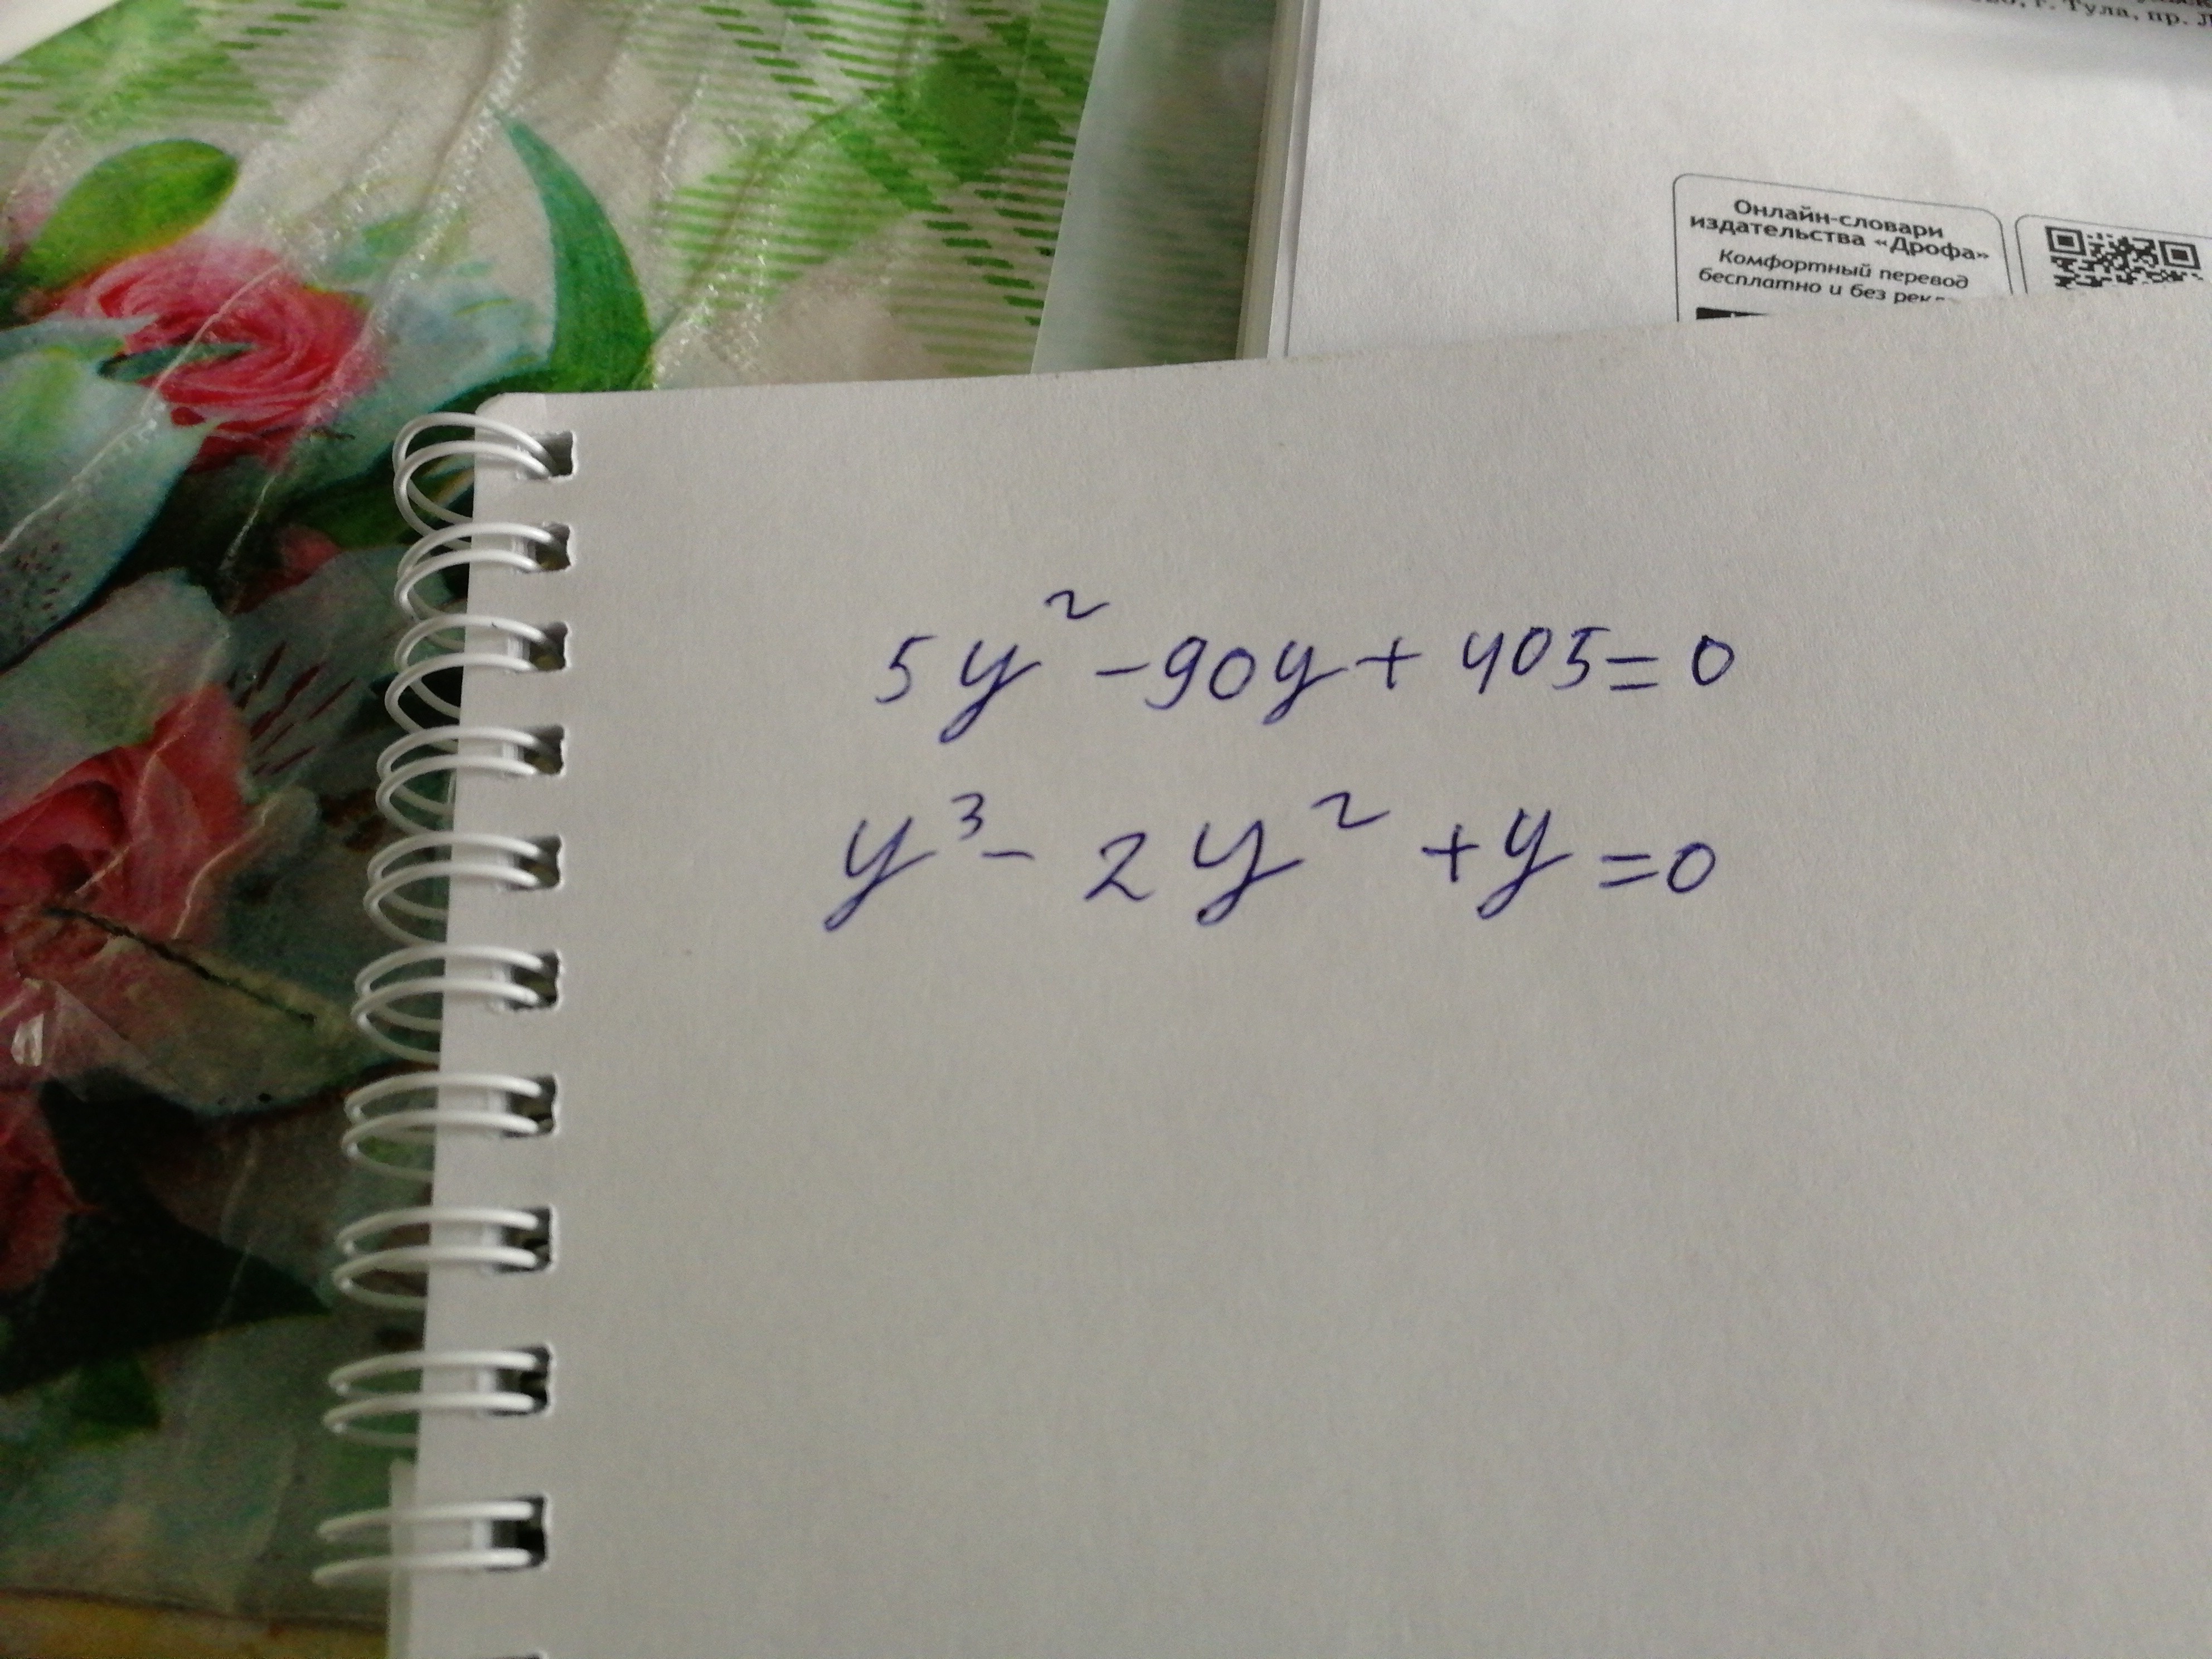 г. Тула, пр. Л
Онлайн-словари
издательства «Дрофа»
Комфортный перевод
бесплатно и без рек
5y² - 90y + 405 = 0
y³ - 2y² + y = 0